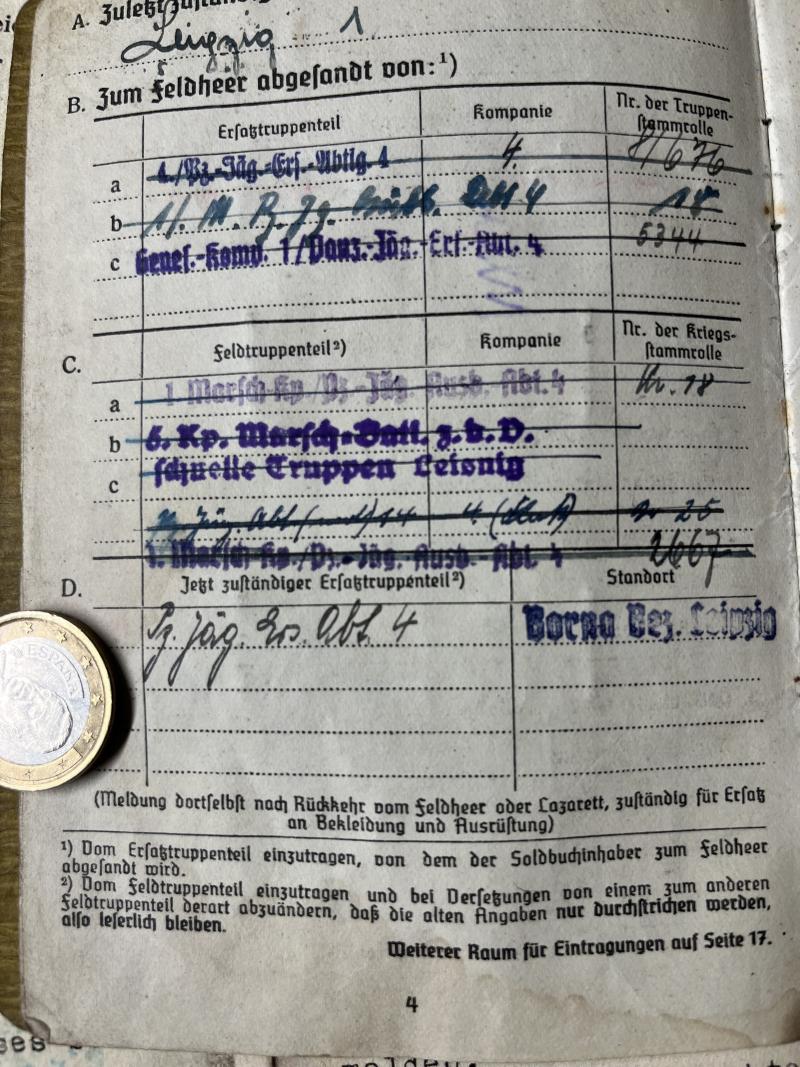 A. Zuletzt zuständig
Leipzig 1
B. Zum Feldheer abgesandt von:¹)
Ersatztruppenteil Kompanie Nr. der Truppen-
stammrolle
a 4./Pz.-Jäg.-Ers.-Abtlg. 4 4. 8/676
b 1/. 4 18
c Genes.-Komp. 1/Panz.-Jäg.-Ers.-Abt. 4 5344
C. Feldtruppenteil²) Kompanie Nr. der Kriegs-
stammrolle
a 1. Marsch-Kp./Pz.-Jäg. Ausb. Abt. 4 Nr. 18
b 6. Kp. Marsch-Batl. z.b.V.
c schnelle Truppen Leisnig
Pz. Jäg. Abt 14 4 25
1. Marsch-Kp./Pz.-Jäg. Ausb.-Abt. 4 2667
D. Jetzt zuständiger Ersatztruppenteil²) Standort
Pz. Jäg. Ers. Abt. 4 Borna Bez. Leipzig
(Meldung dortselbst nach Rückkehr vom Feldheer oder Lazarett, zuständig für Ersatz
an Bekleidung und Ausrüstung)
¹) Vom Ersatztruppenteil einzutragen, von dem der Soldbuchinhaber zum Feldheer
abgesandt wird.
²) Vom Feldtruppenteil einzutragen und bei Versetzungen von einem zum anderen
Feldtruppenteil derart abzuändern, daß die alten Angaben nur durchstrichen werden,
also leserlich bleiben.
Weiterer Raum für Eintragungen auf Seite 17.
4
ESPAÑA